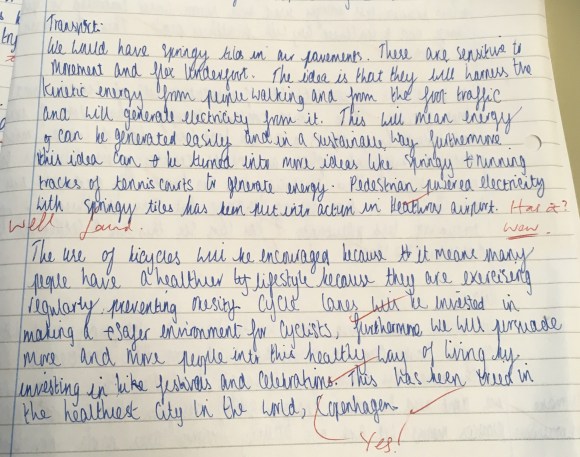 Transport:
We would have springy tiles in our pavements. These are sensitive to
movement and flex underfoot. The idea is that they will harness the
kinetic energy from people walking and from the foot traffic
and will generate electricity from it. This will mean energy
can be generated easily and in a sustainable way furthermore
this idea can be turned into more ideas like springy running
tracks of tennis courts to generate energy. Pedestrian powered electricity
with springy tiles has been put into action in Heathrow airport. Has it?
Well found. Wow.
The use of bicycles will be encouraged because it means many
people have a healthier lifestyle because they are exercising
regularly, preventing obesity. Cycle lanes will be invested in
making a safer environment for cyclists, furthermore we will persuade
more and more people into this healthy way of living by
investing in bike festivals and celebrations. This has been tried in
the healthiest city in the world, Copenhagen
Yes!